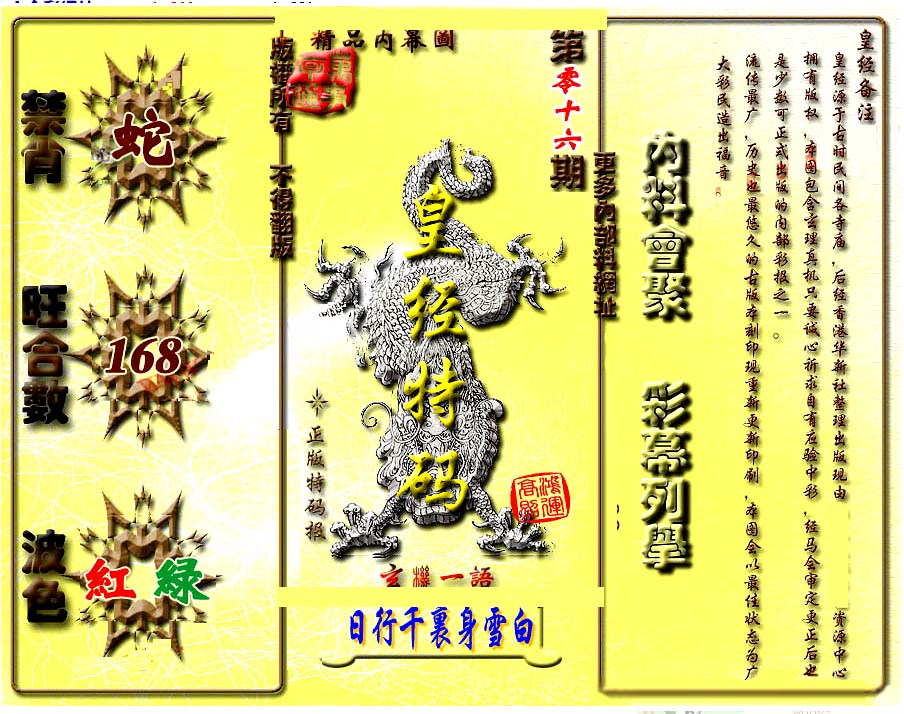 禁肖
蛇
旺合數
168
波色
紅 綠
精品内幕圖
版權所有 不得翻版
第零十六期
更多內部料網址
皇经特码
正版特码报
鴻運
高照
玄機一語
日行千裏身雪白
内料會聚 彩幕列舉
皇经备注
皇经源于古时民间各寺庙,后经香港华新社整理出版现由 资源中心
拥有版权,本图包含玄理真机只要诚心祈求自有应验中彩,经马会审定更正后也
是少数可正式出版的内部彩报之一。
流传最广,历史也最悠久的古版本刻印现重新更新印刷,本图会以最佳状态为广
大彩民造出福音